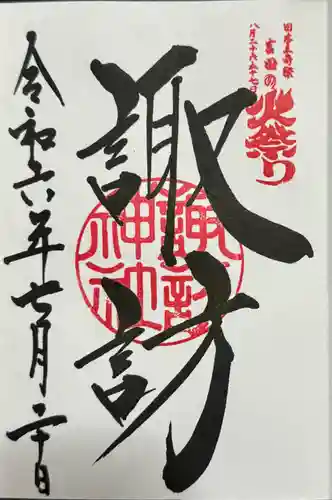 日本三奇祭
吉田の
火祭り
八月二十六、二十七日
諏訪
諏訪
神社
令和六年七月二十日